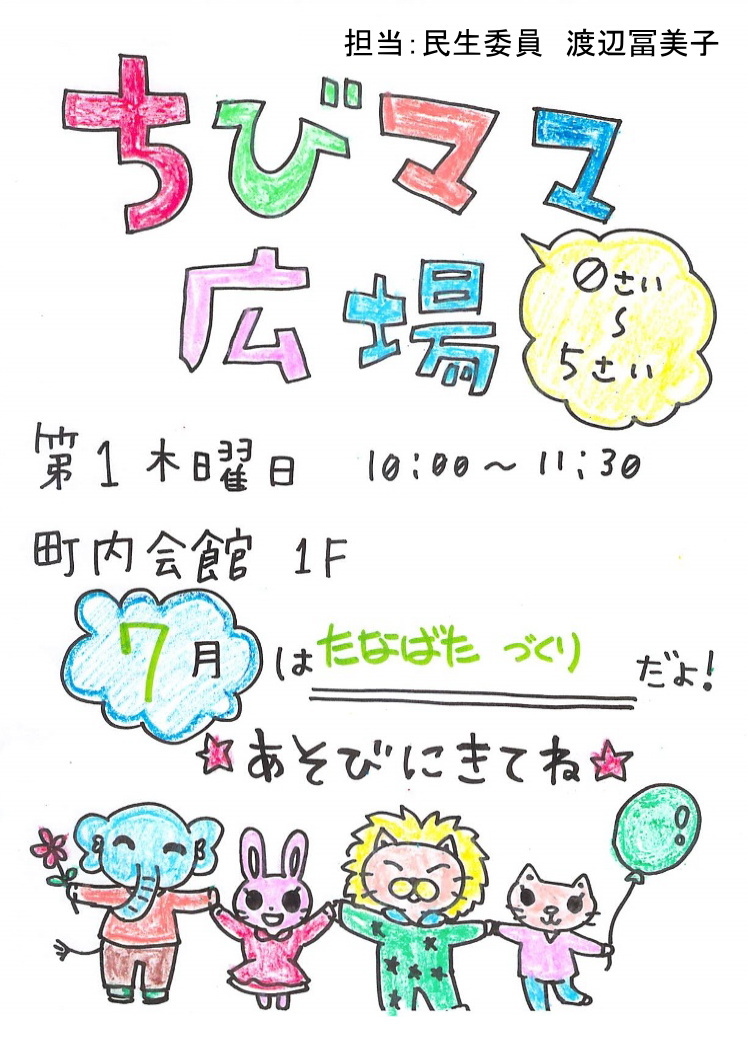 担当：民生委員　渡辺冨美子
ちびママ
広場
0さい
～
5さい
第1木曜日 10:00～11:30
町内会館 1F
7月はたなばたづくりだよ!
★あそびにきてね★